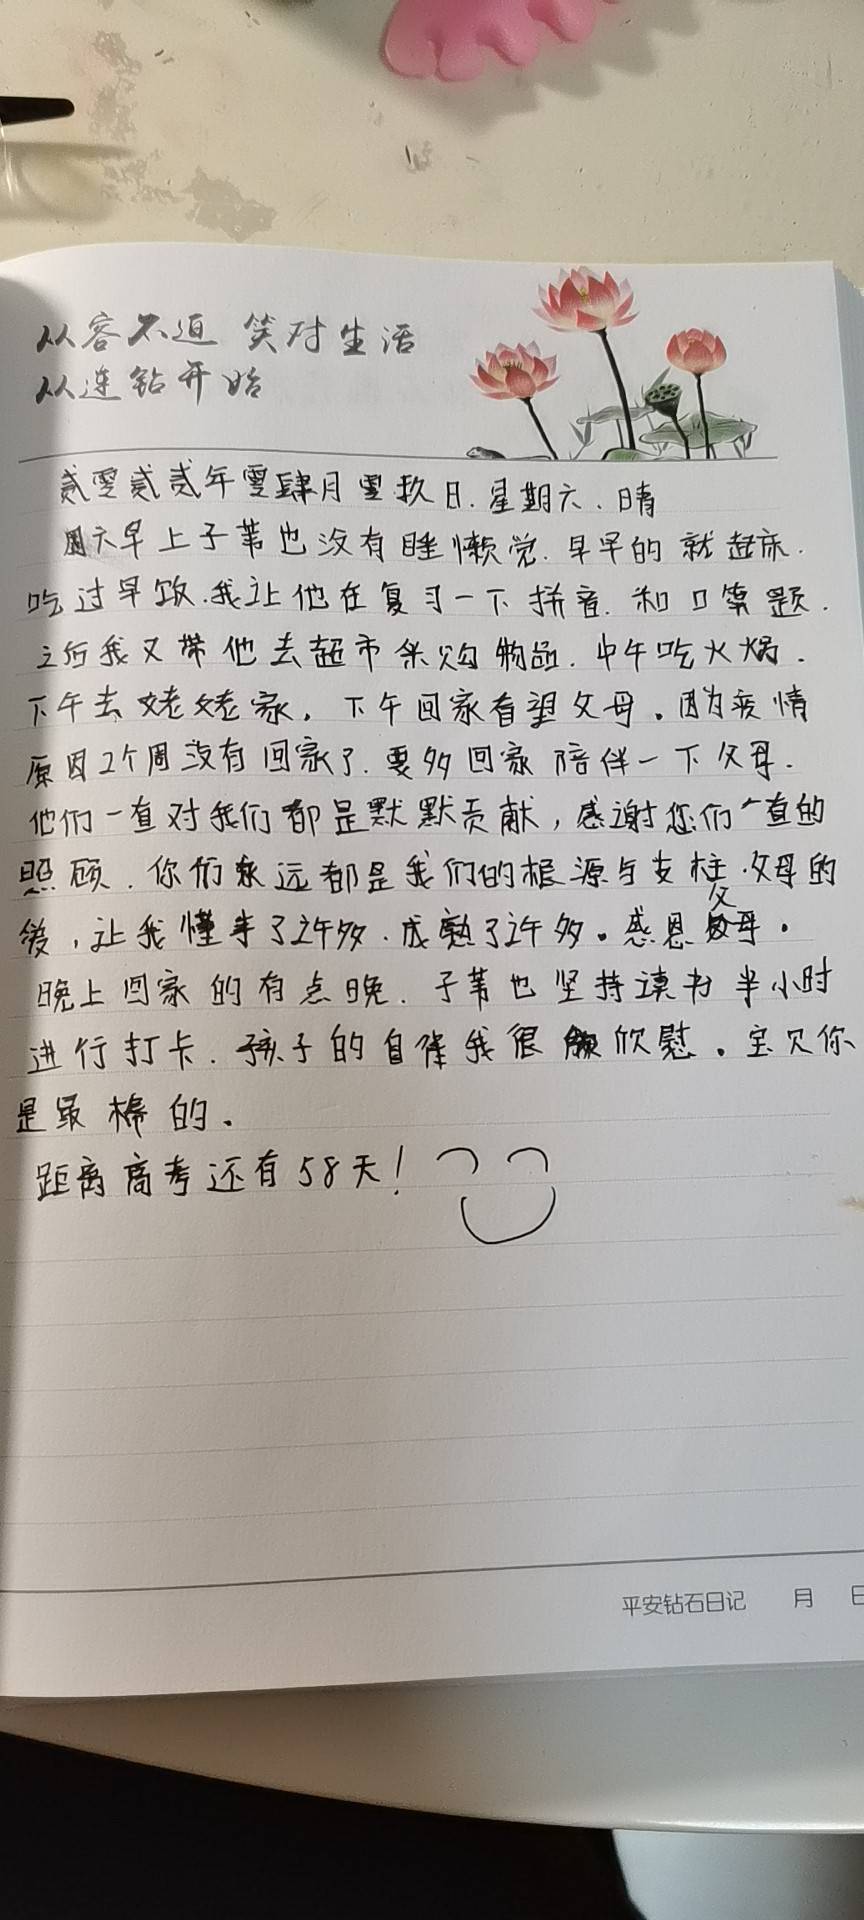 从容不迫 笑对生活
从连钻开始
贰零贰贰年零肆月零玖日.星期六.晴
周六早上子苇也没有睡懒觉.早早的就起床.
吃过早饭.我让他在复习一下拼音.和口算题.
之后我又带他去超市采购物品.中午吃火锅.
下午去姥姥家.下午回家看望父母。因为疫情
原因2个周没有回家了.要多回家陪伴一下父母.
他们一直对我们都是默默贡献,感谢您们一直的
照顾.你们永远都是我们的根源与支柱.父母的
爱,让我懂事了许多.成熟了许多。感恩父母。
晚上回家的有点晚.子苇也坚持读书半小时
进行打卡.孩子的自律我很欣慰。宝贝你
是最棒的。
距离高考还有58天!
平安钻石日记 月 日